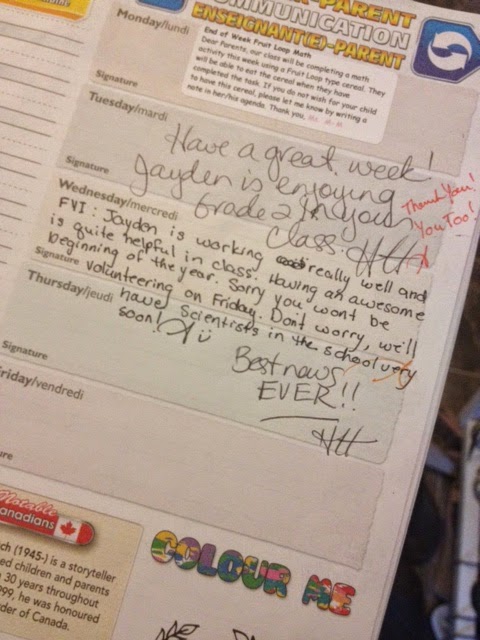 PARENT
COMMUNICATION
ENSEIGNANT(E)-PARENT
Monday/lundi
End of Week Fruit Loop Math
Dear Parents, our class will be completing a math
activity this week using a Fruit Loop type cereal. They
will be able to eat the cereal when they have
completed the task. If you do not wish for your child
to have this cereal, please let me know by writing a
note in her/his agenda. Thank you,
Signature
Tuesday/mardi
Have a great week!
Jayden is enjoying
Grade 2 in your
class.
Thank you!
You Too!
Signature
Wednesday/mercredi
FYI: Jayden is working really well and
is quite helpful in class. Having an awesome
beginning of the year. Sorry you wont be
Signature
volunteering on Friday. Don't worry, we'll
Thursday/jeudi
have scientists in the school very
soon!
Best news
EVER!!
Signature
Friday/vendredi
Notable
Canadians
(1945-) is a storyteller
children and parents
30 years throughout
he was honoured
of Canada.
COLOUR ME